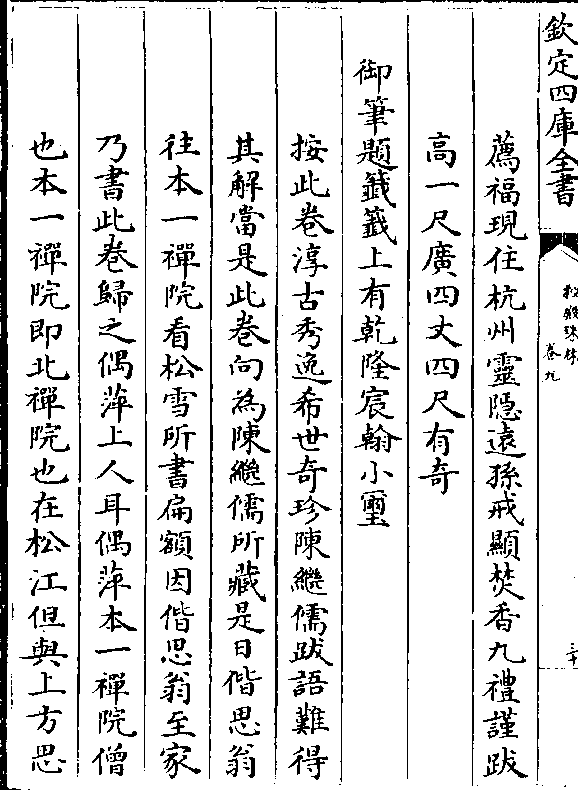 欽定四庫全書
秘殿珠林
卷九
三十
薦福現住杭州靈隱遠孫戒顯焚香九禮謹跋
高一尺廣四丈四尺有奇
御筆題籤籤上有乾隆宸翰小璽
按此卷淳古秀逸希世奇珍陳繼儒跋語難得
其解當是此卷向為陳繼儒所藏是日偕思翁
往本一禪院看松雪所書扁額因偕思翁至家
乃書此卷歸之偶萍上人耳偶萍本一禪院僧
也本一禪院即北禪院也在松江但與上方思